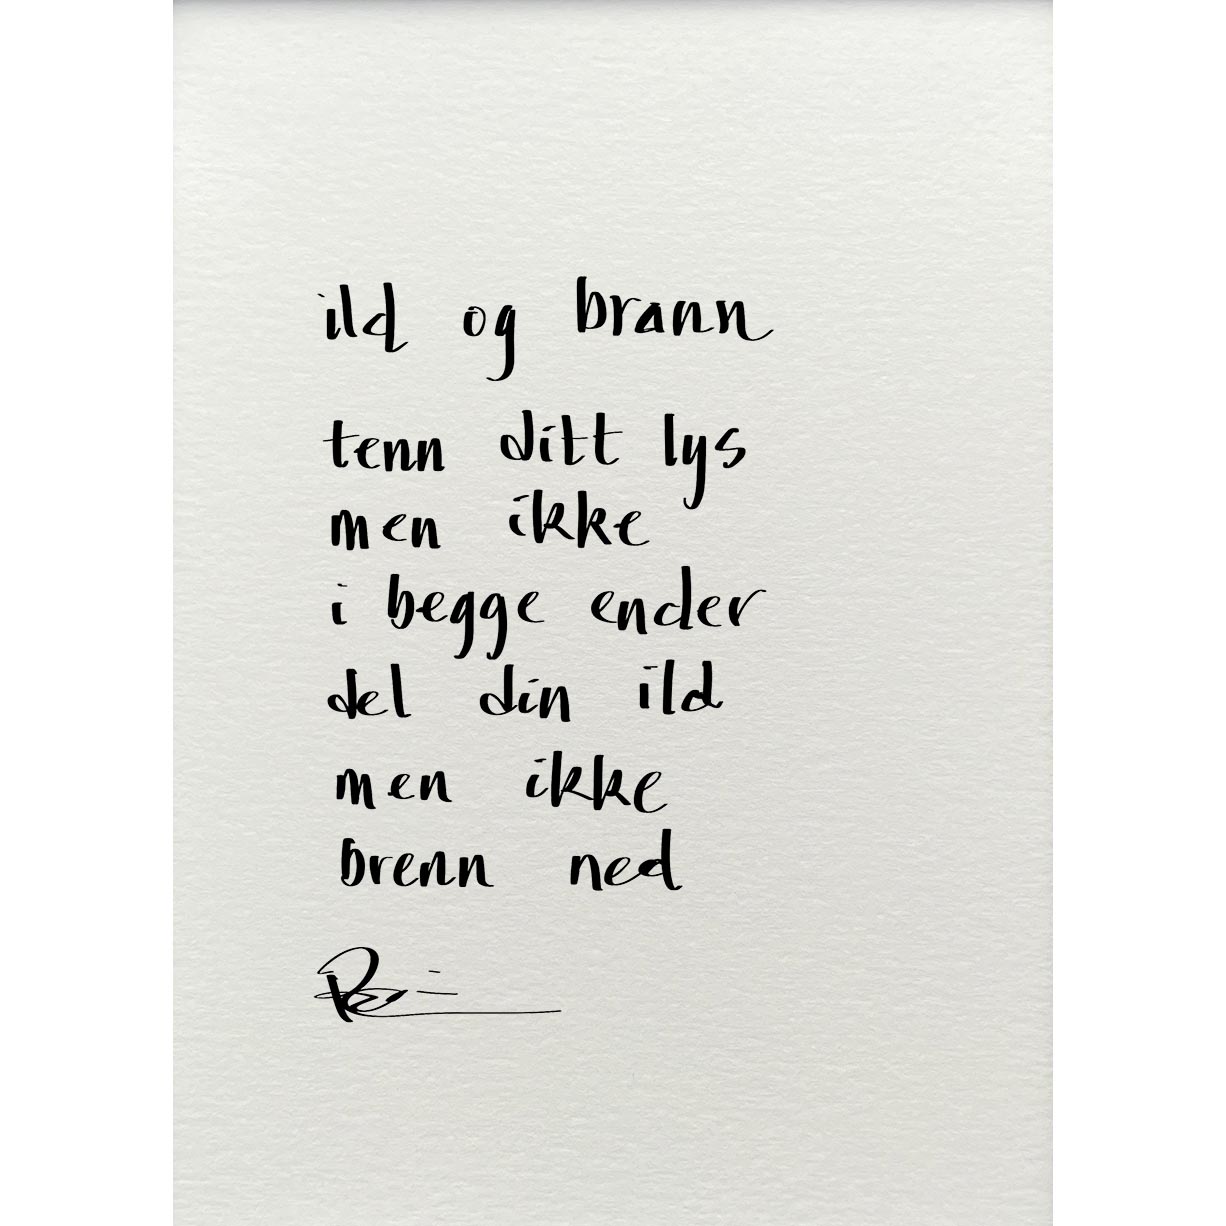 ild og brann
tenn ditt lys
men ikke
i begge ender
del din ild
men ikke
brenn ned